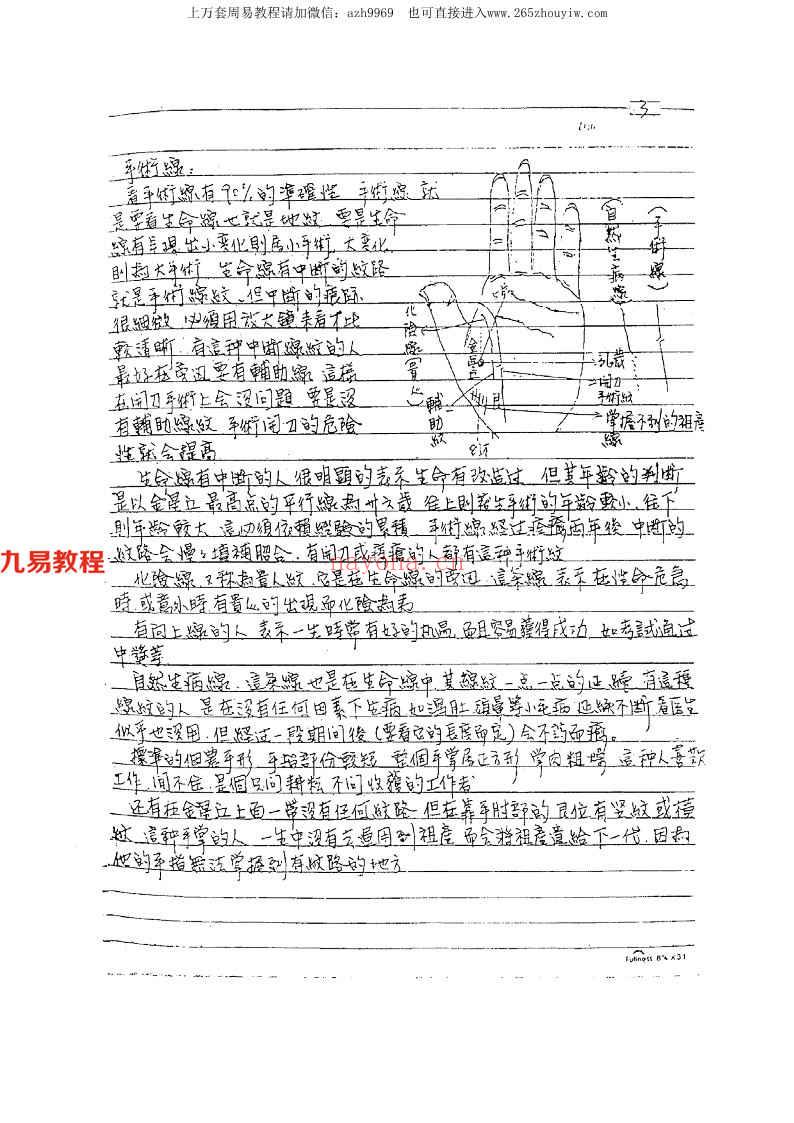 上万套周易教程请加微信：azh9969 也可直接进入www.265zhouyiw.com
3
手術線：
看手術線有90%的準確性 手術線 就
是要看生命線 也就是地紋 要是生命
線有呈現出小变化則居小手術, 大变化,
則為大手術 生命線有中断的紋路
就是手術線紋、但中断的痕跡,
很細微 必須用放大鏡來看才比
較清晰. 有這种中断線紋的人
最好在旁边要有輔助線 這樣
在開刀手術上会沒問題 要是沒
有輔助線紋 手術開刀的危險
性就会提高
(手術線)
(自然生病線)
化險線(貴人)
輔助紋
卅六歲
開刀
手術紋
掌握不到的祖產線
生命線有中断的人 很明顯的表示生命有改造过 但其年齡的判断
是以金星丘最高点的平行線為卅六歲 往上則表示手術的年齡較小、往下
則年齡較大 這必須依賴經驗的累積. 手術線經过痊癒兩年後 中断的
紋路会慢々填補胎合. 有開刀或痊癒的人都有這种手術紋
九易教程
nayona.cn
化險線 又称為貴人紋 它是在生命線的旁边 這条線 表示在性命危急
時,或意外時有貴人的出現而化險為夷
有向上線的人 表示一生時常有好的机遇,而且容易獲得成功 如考試通过
中獎等
自然生病線. 這条線也是在生命線中,其線紋一点一点的延續 有這種
線紋的人 是在沒有任何因素下生病,如瀉肚 頭暈等小毛病 延綿不断 看医生
似乎也沒用. 但經过一段期間後(要看它的長度而定)会不药而癒。
標準的但農手形 手指部份較短 整個手掌居正方形 掌肉粗壯 這种人喜歡
工作,閒不住,是個只问耕耘 不问收獲的工作者
还有在金星丘上面一带沒有任何紋路 但在靠手肘部的艮位有竖紋或橫
紋 這种手掌的人 一生中沒有去運用到祖產 而会將祖產遺給下一代 因為
他的手指無法掌握到有紋路的地方
Fullness 8¾ x 31